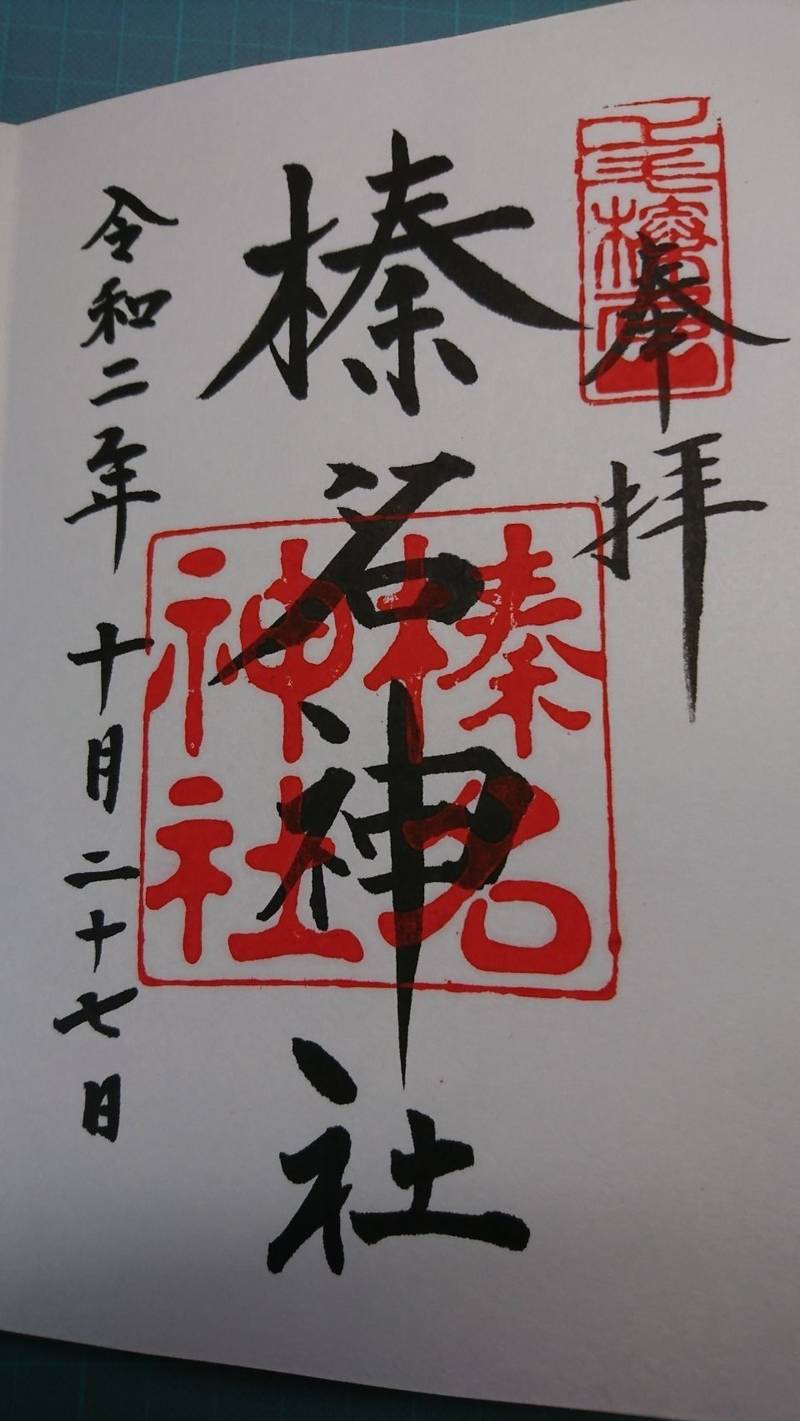 奉拝
榛名神社
榛名
神社
令和二年十月二十七日